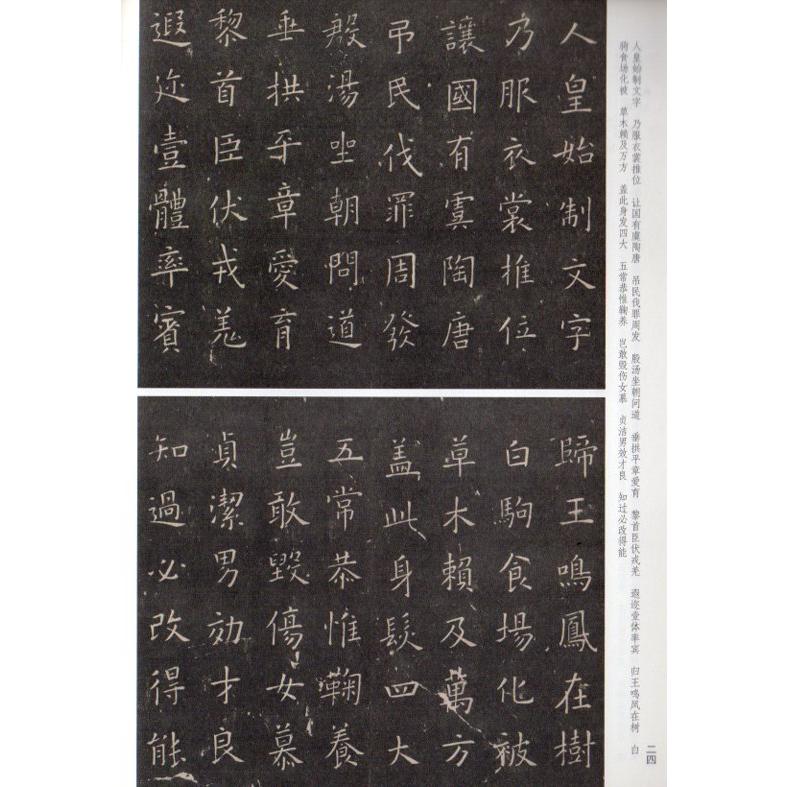 人皇始制文字 乃服衣裳推位 让国有虞陶唐 吊民伐罪周发 殷汤坐朝问道 垂拱平章爱育 黎首臣伏戎羌 遐迩壹体率宾 归王鸣凤在树 白
驹食场化被 草木赖及万方 盖此身发四大 五常恭惟鞠养 岂敢毁伤女慕 贞洁男效才良 知过必改得能
二四
人皇始制文字
乃服衣裳推位
讓國有虞陶唐
弔民伐罪周發
殷湯坐朝問道
垂拱平章愛育
黎首臣伏戎羌
遐迩壹體率賓
歸王鳴鳳在樹
白駒食場化被
草木賴及萬方
盖此身髮四大
五常恭惟鞠養
豈敢毀傷女慕
貞潔男効才良
知過必改得能